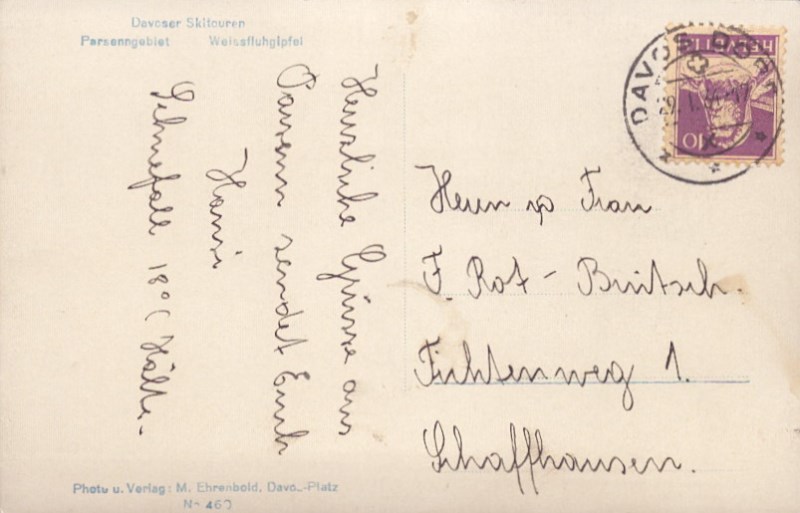 Davoser Skitouren
Parsenngebiet Weissfluhgipfel
Herzliche Grüsse aus
Parsenn sendet Euch
Hansi
Schneefall 18°C Kälte.
HELVETIA
10
DAVOS DORF
Herrn u Frau
F. Rot - Brütsch.
Fichtenweg 1.
Schaffhausen.
Photo u. Verlag: M. Ehrenbold, Davos-Platz
No 460